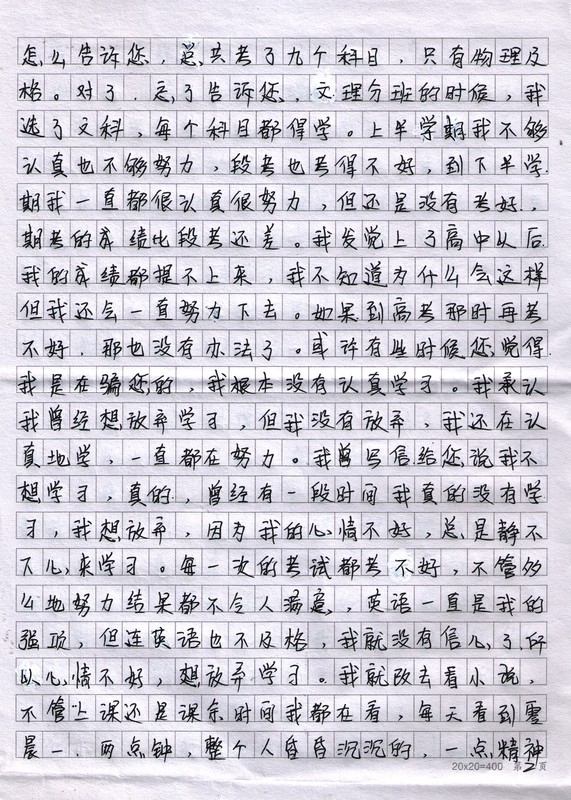 怎么告诉您，总共考了九个科目，只有物理及
格。对了，忘了告诉您，文理分班的时候，我
选了文科，每个科目都得学。上半学期我不够
认真也不够努力，段考也考得不好，到下半学
期我一直都很认真很努力，但还是没有考好，
期考的成绩比段考还差。我发觉上了高中以后
我的成绩都提不上来，我不知道为什么会这样
但我还会一直努力下去。如果到高考那时再考
不好，那也没有办法了。或许有些时候您觉得
我是在骗您的，我根本没有认真学习。我承认
我曾经想放弃学习，但我没有放弃，我还在认
真地学，一直都在努力。我曾写信给您说我不
想学习，真的，曾经有一段时间我真的没有学
习，我想放弃，因为我的心情不好，总是静不
下心来学习。每一次的考试都考不好，不管多
么地努力结果都不令人满意，英语一直是我的
强项，但连英语也不及格，我就没有信心了，所
以心情不好，想放弃学习。我就改去看小说，
不管上课还是课余时间我都在看，每天看到零
晨一、两点钟，整个人昏昏沉沉的，一点精神
20×20=400 第2页